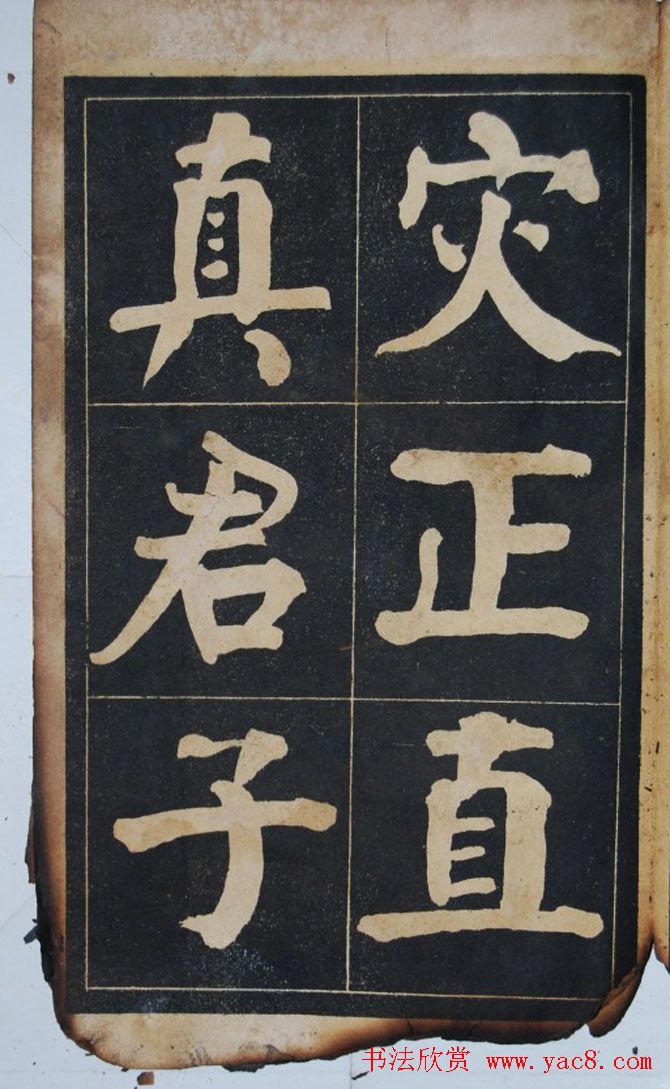 灾正直
真君子
书法欣赏 www.yac8.com